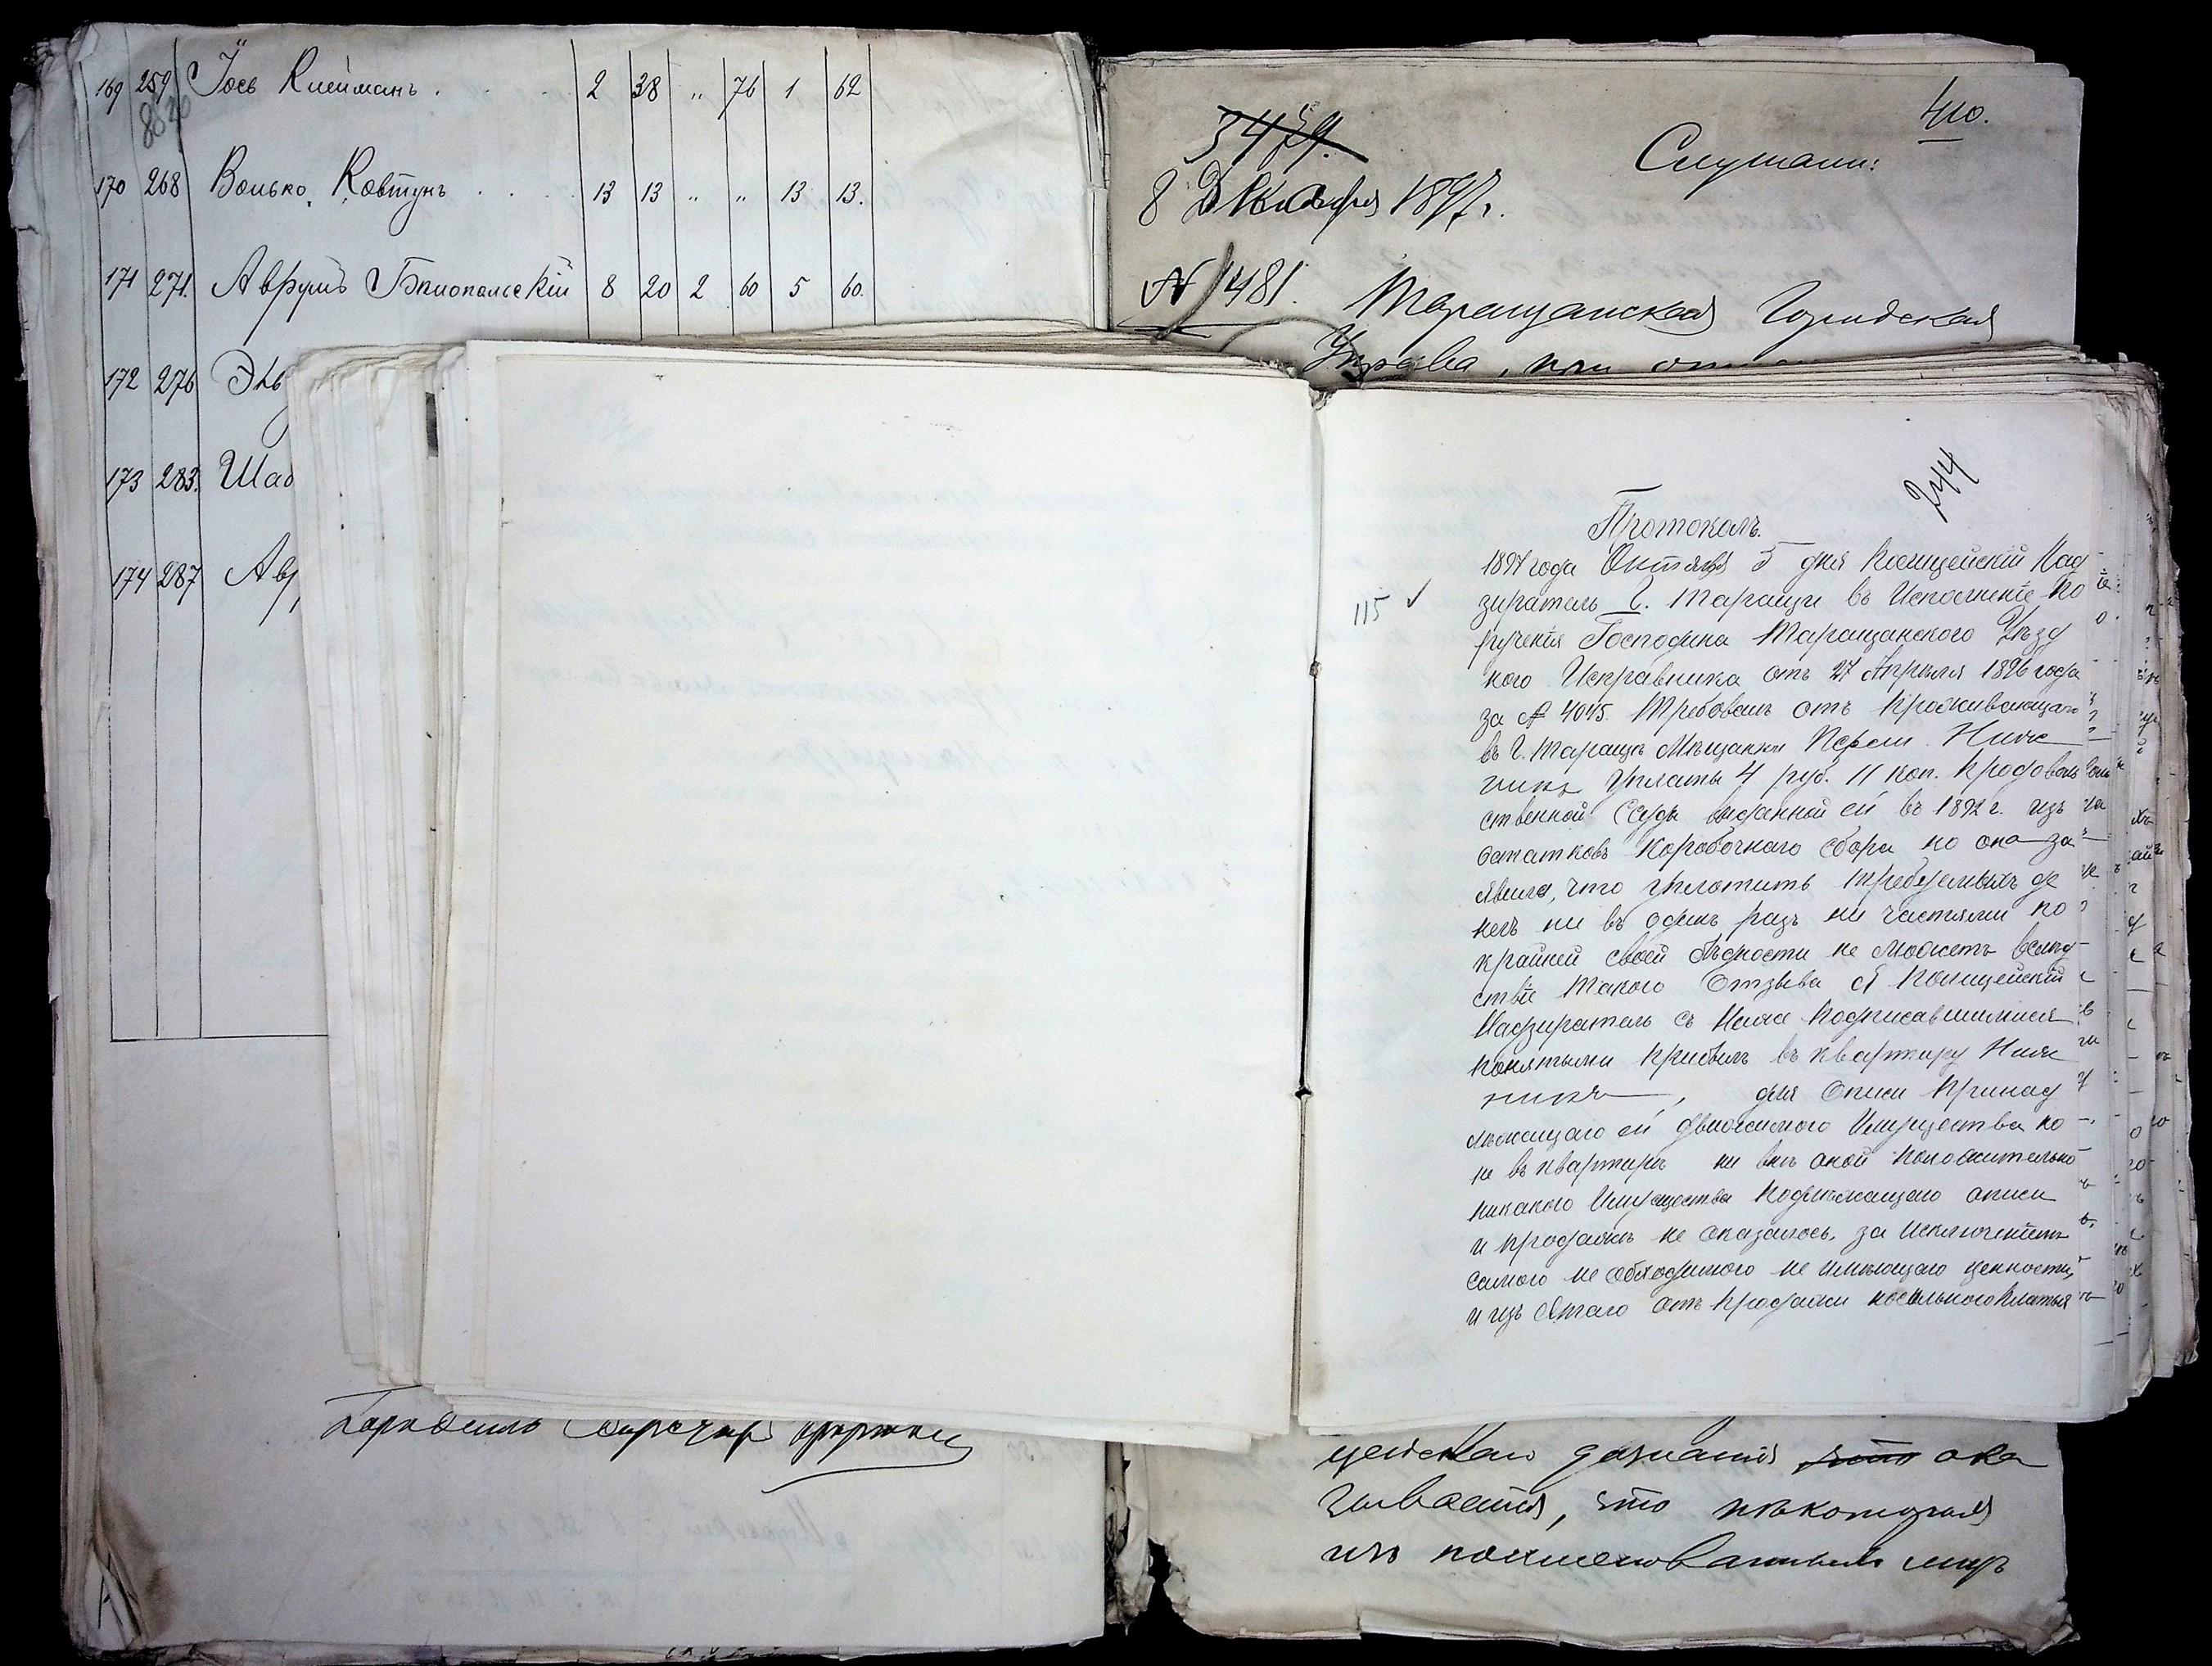 169 259 Іось Клейманъ 2 38 „ 76 1 62
170 268 Волько Ковтунъ 13 13 „ „ 13 13.
171 271. Аврумъ Бялопольскій 8 20 2 60 5 60.
172 276
173 283.
174 287
410.
3479.
Слушали:
8 Декабря 1897 г.
№ 1481.
Таращанская Городская
Управа, при
244
Протоколъ.
115 ✓
1897 года Октября 5 дня Полицейскій Над
зиратель Г. Таращи въ Исполненіе По
рученія Господина Таращанского Уѣзд
ного Исправника отъ 27 Апрѣля 1896 года
за № 4045. Требовалъ отъ проживающаго
въ Г. Таращѣ Мѣщанки Перли
Уплаты 4 руб. 11 коп. Продоволь
ственной Ссуды выданной ей въ 1892 г. изъ
остатковъ Коробочнаго сбора но она за
явила, что уплотить требуемыхъ де
негъ ни въ одинъ разъ ни частями по
крайней своей бѣдности не можетъ вслѣд
ствіе такого Отзыва я Полицейскій
Надзиратель съ Ниже подписавшимися
понятыми прибылъ въ квартиру
для Описи принад
лежащаго ей движимого Имущества но
не въ квартирѣ ни внѣ оной положительно
никакого Имущества подлежащаго описи
и продажѣ не оказалось, за исключеніемъ
самого не обходимого не имѣющаго ценности,
и изъ ятаго отъ продажи носильного платья
цейскаго дознанія что ока
зывается, что нѣкоторыя
изъ поименованныхъ лицъ